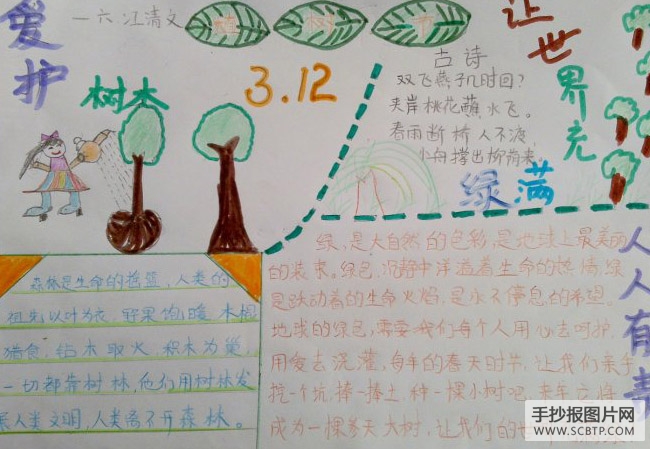 爱护
树木
一六 江清文
植
树
节
3.12
古诗
双飞燕子几时回？
夹岸桃花蘸水飞。
春雨断桥人不渡，
小舟撑出柳荫来。
让世界充
绿满
人人有责
森林是生命的摇篮，人类的
祖先以叶为衣，野果饱暖，木棍
猎食，钻木取火，积木为巢，
一切都靠树林，他们用树林发
展人类文明，人类离不开森林。
绿，是大自然的色彩，是地球上最美丽
的装束。绿色，沉静中洋溢着生命的热情，绿
是跃动着的生命火焰，是永不停息的希望。
地球的绿色，需要我们每个人用心去呵护，
用爱去浇灌，每年的春天时节，让我们亲手
挖一个坑，捧一捧土，种一棵小树吧，来年它将
成为一棵参天大树，让我们的世
手抄报图片网
WWW.SCBTP.COM